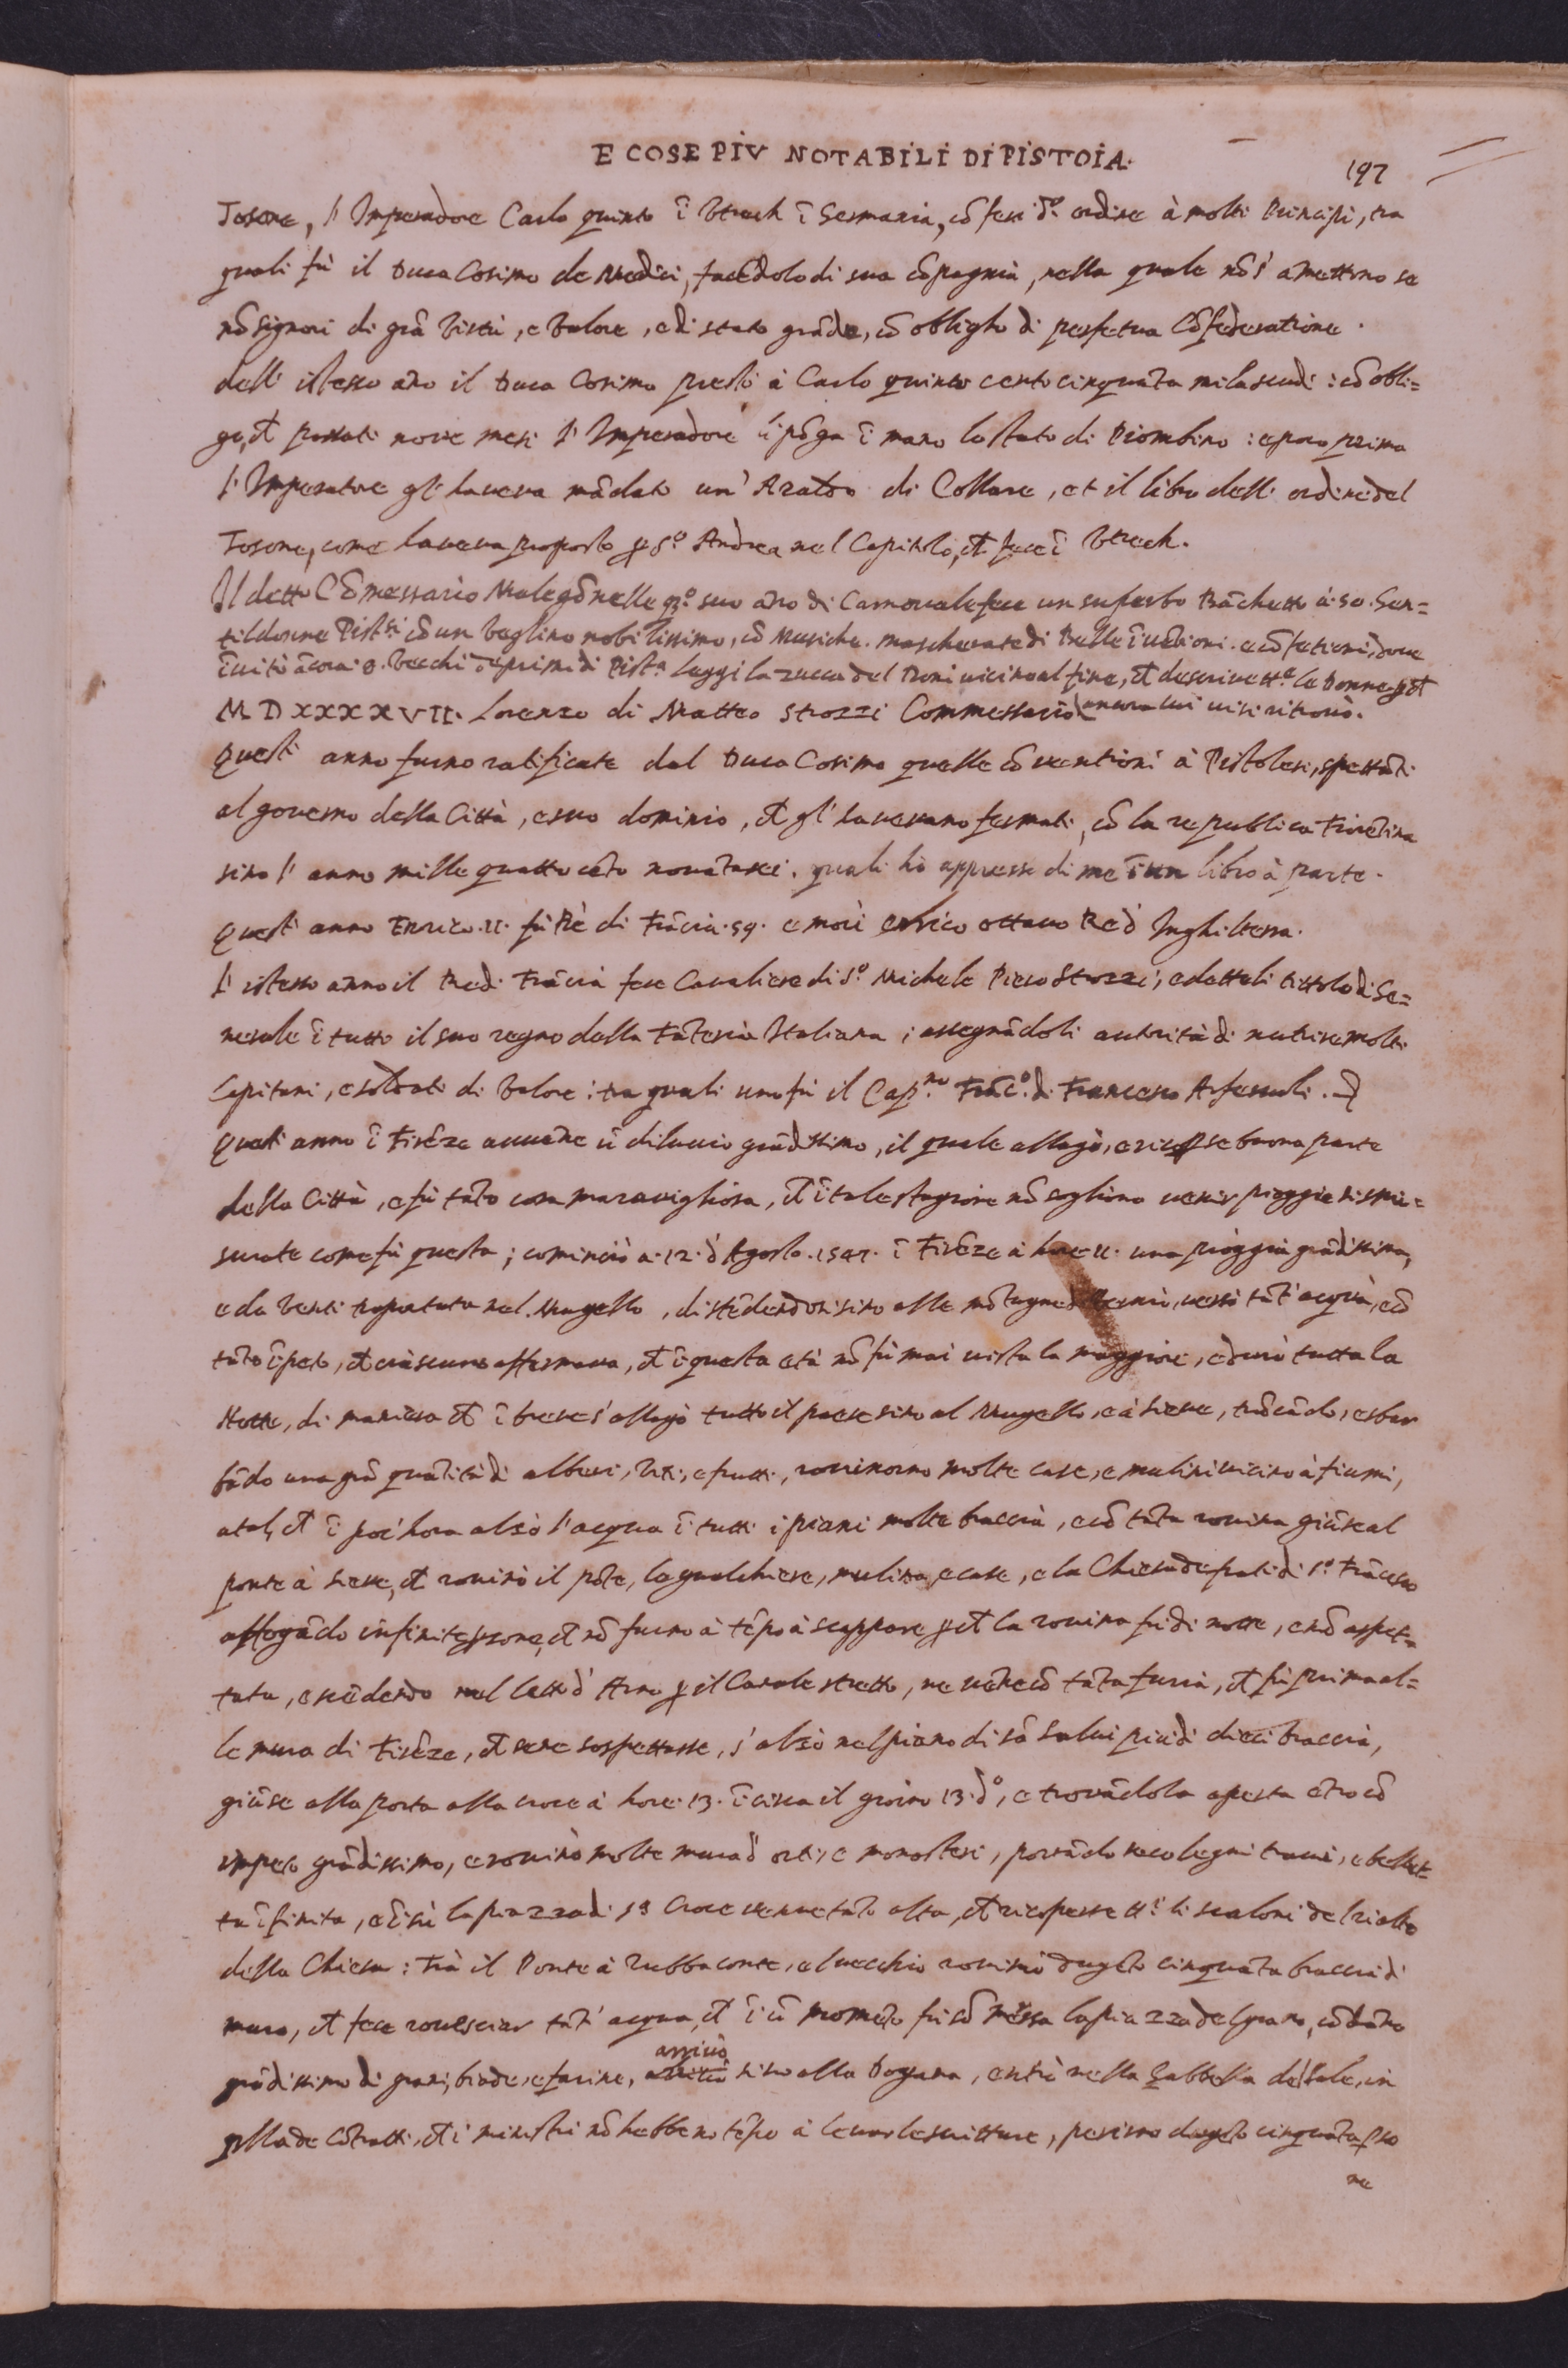 E COSE PIV NOTABILI DI PISTOIA.
197
Tosone, l' Imperadore Carlo quinto ĩ Vtrech ĩ Germania, cõ feri d.º ordine à molti Principi, tra
quali fù il Duca Cosimo de Medici, facẽdolo di sua cõpagnia, nella quale nõ s' amettono se
nõ signori di grã Virtù, e Valore, e di stato grãde, cõ obligho di perpetua Cõfederatione.
dell' istesso año il Duca Cosimo prestò à Carlo quinto cento cinquãta mila scudi: cõ obli=
go, ch̃ passati nove mesi l' Imperadore li põga ĩ mano lo stato di Piombino: e poco prima
l' Imperatore gl' haveva mãdato un' Araldo di Collare, et il libro dell' ordine del
Tosone, come haveva proposto p S.º Andrea nel Capitolo, ch̃ fece ĩ Vtrech.
Il detto Cõmessario Malegõnelle p.º suo año di Carnovale fece un superbo Bãchetto à 50. Gen=
tildonne Pist.si cõ un veglino nobilissimo, cõ Musiche. mascherate di Belle ĩvẽtioni. e cõfetioni, dove
ĩvitò ãcora 8. Vecchi de primi di Pist.a Leggi la zucca del Doni vicino al fine, ch̃ descrive tt.e le Donne p ch̃
MDXXXXVII. Lorenzo di Matteo Strozzi Commessario. ancora lui vi si ritrovò.
Quest' anno furno ratificate dal Duca Cosimo quelle cõventioni à Pistolesi, spettãti
al governo della Città, e suo dominio, ch̃ gl' havevano fermati, cõ la republica Fiorẽtina
sino l' anno mille quattrocẽto novãtasei. quali hò appresso di me ĩ un libro à parte.
Quest' anno Enrico. II. fù Rè di Frãcia. 59. e morì enrico ottavo Re d' Inghilterra.
l' istesso anno il Re di Frãcia fece Cavaliere di S.º Michele Piero Strozzi, e datteli tittolo di Ge=
nerale ĩ tutto il suo regno della Fãteria Italiana; assegnãdoli autorità di nutrire molti
Capitani, e soldati di Valore: tra quali uno fù il Cap.no Frãc.º di Francesco Arfaruoli.
Quest' anno ĩ Firẽze auuẽne ũ diluvio grãdissimo, il quale allagò, e ricoperse buona parte
della Città, e fù tãto cosa maravigliosa, ch̃ ĩ tale stagione nõ sogliono venir pioggie sismi=
surate come fù questa; cominciò a. 12. d' Agosto. 1547. ĩ Firẽze à hore II. una pioggia grãdissima,
e da Venti traportata nel Mugello, distẽdendosi sino alle mõtagne versò tãt' acqua, e cõ
tãto ĩpeto, ch̃ ciascuno affermava, ch̃ ĩ questa età nõ fù mai vista la maggiore, e durò tutta la
Notte, di maniera ch̃ ĩ breve s' allagò tutto il paese sino al Mugello, e à Sieve, trõcãdo, e sbar
bãdo una grã quãtità di alberi, Viti, e frutti, rovinorno molte case, e mulini vicino à fiumi,
a tal, ch̃ ĩ poc' hora alzò l' acqua ĩ tutti i piani molte braccia, e cõ tãta rovina giũse al
ponte à Sieve, ch̃ rovinò il põte, la gualchiere, mulina, e case, e la Chiesa de frati di S.º Frãcesco
affogãdo infinite psone, ch̃ nõ furno à tẽpo à scappare p ch̃ la rovina fù di notte, e nõ aspet=
tata, e scẽdendo nel letto d' Arno p il Canale stretto, ne vẽne cõ tãta furia, ch̃ fù prima al=
le mura di Firẽze, ch̃ se ne sospettasse, s' alzò nel piano di sã Salvi più di dieci braccia,
giũse alla porta alla croce à hore. 13. ĩ circa il giorno 13. d.º, e trovãdola aperta ẽtrò cõ
impeto grãdissimo, e rovinò molte mura d' orti, e monasteri, portãdo seco legni travi, e bellet=
ta ĩfinita, e ĩ sù la piazza di S.a Croce vẽnne tãto alta, ch̃ ricoperse tt.i li scaloni del rialto
della Chiesa: Trà il Ponte à Rubbaconte, e l vecchio rovinò dugẽto cinquãta braccia di
muro, ch̃ fece rovesciar tãt' acqua, ch̃ ĩ ũ momẽto fù sõmersa la piazza del grano, cõ dãno
grãdissimo di grani, biade, e farine, arrivò sino alla Dogana, entrò nella Gabbella del Sale, in
qlla de Cõtratti, ch̃ i ministri nõ hebbeno tẽpo à levar le scritture, perirno dugẽto cinquãta pso
ne